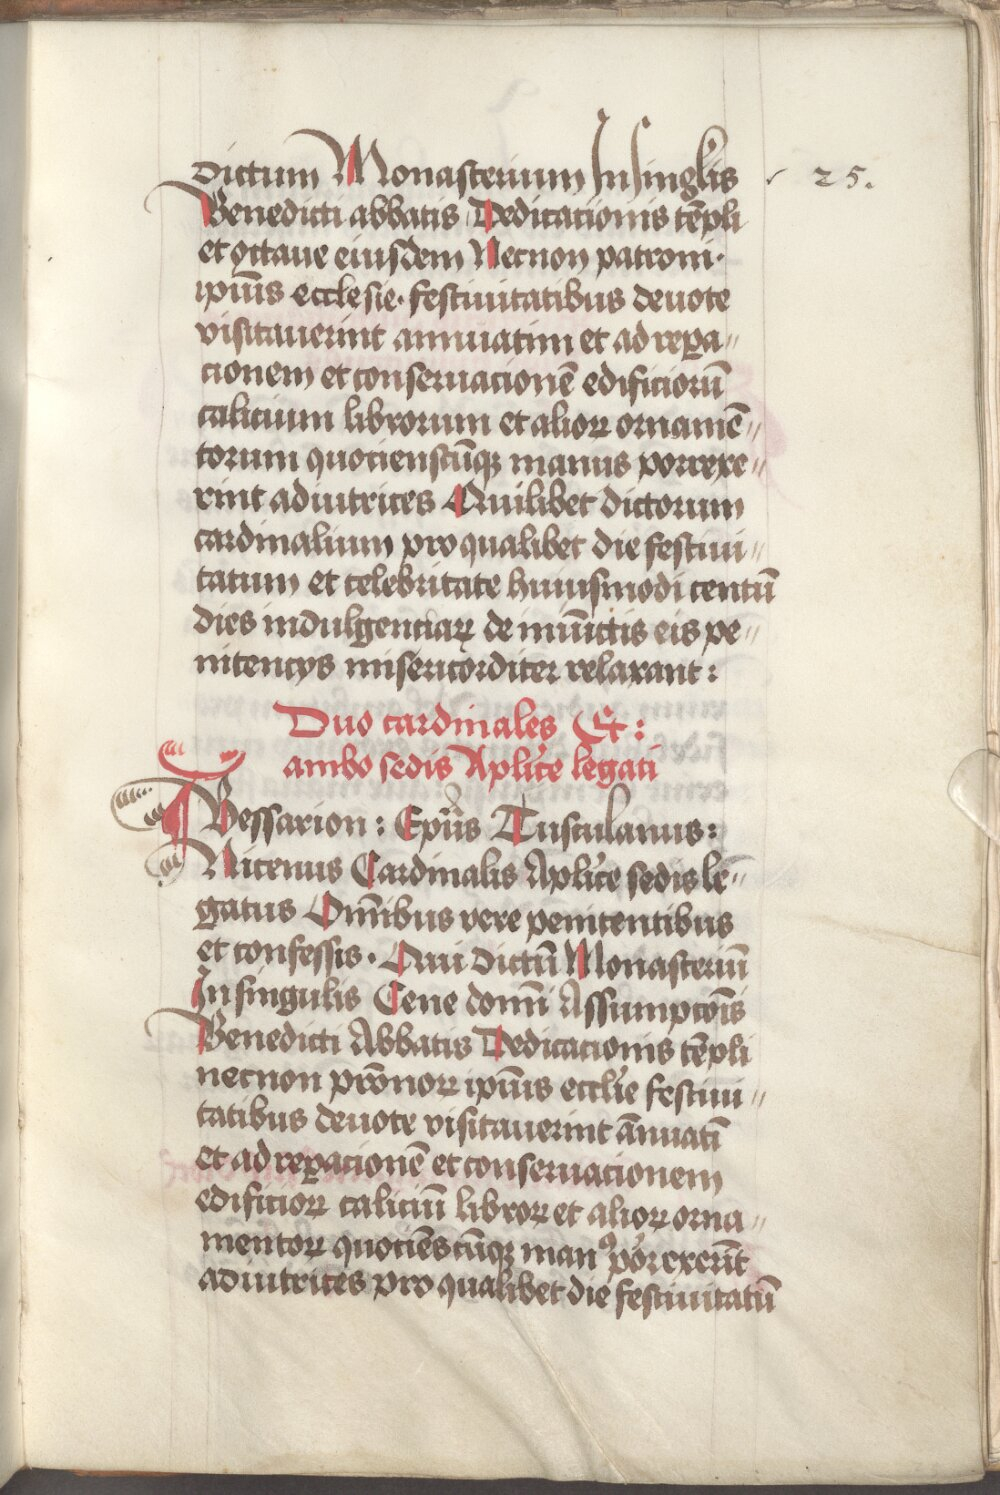 dictum Monasterium In singl'is
25.
Benedicti abbatis Dedicationis te̅pli
et octaue eiusdem Necnon patroni·
ipiu̅s ecclesie· festiuitatibus deuote
visitauerint annuatim et ad repa〃
cionem et conseruacione̅ edificioru̅
calicium librorum et alioꝝ orname̅〃
torum quotienscu̅qꝫ manus porrexe〃
rint adiutrices Quilibet dictorum
cardinalium pro qualibet die festiui〃
tatum et celebritate huiusmodi centu̅
dies indulgenciaꝝ de iniu̅ctis eis pe〃
nitencys misericorditer relaxant:
Duo cardinales Et:
ambo sedis Aplic̅e legati
Bessarion: Epu̅s Tusculanus:
Nicenus Cardinalis Aplic̅e sedis le〃
gatus Om̅ibus vere penitentibus
et confessis· Qui dictu̅ Monasteriu̅
In singulis Cene domi̅ Assumpcoi̅s
Benedicti Abbatis Dedicationis te̅pli
necnon pro̅noꝝ ipiu̅s eccl'ie festiui〃
tatibus deuote visitauerint a̅nuati̅
et ad repacione̅ et conseruacionem
edificioꝝ caliciu̅ libroꝝ et alioꝝ orna〃
mentoꝝ quocie̅scu̅qꝫ manꝰ porrexeri̅t
adiutrices pro qualibet die festiuitatu̅